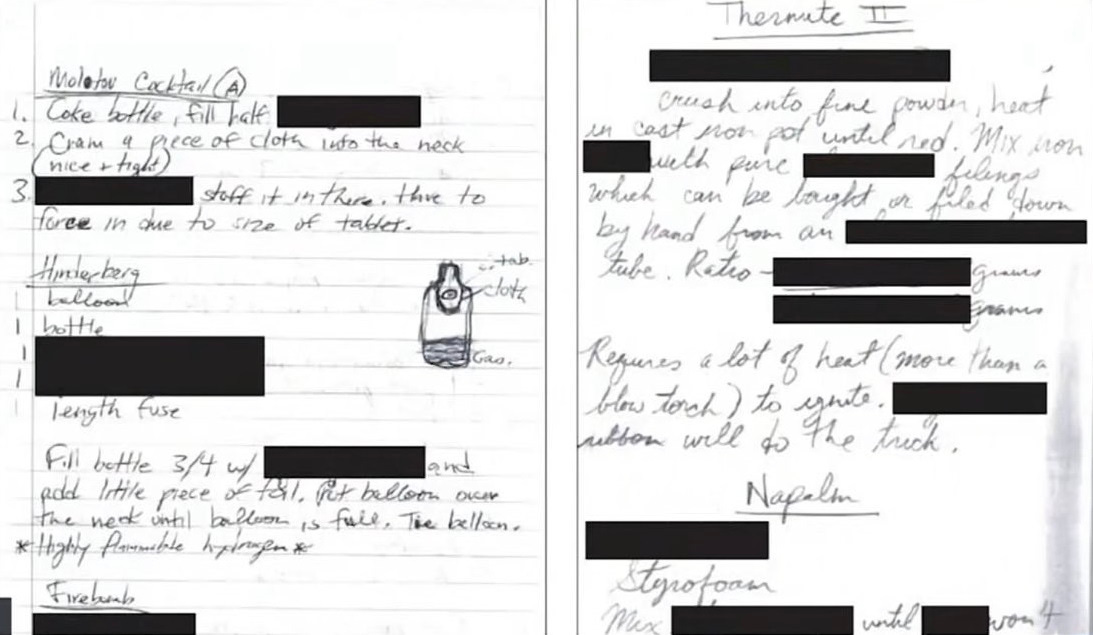 Molotov Cocktail (A)
1. Coke bottle, fill half
2. Cram a piece of cloth into the neck
(nice + tight)
3. stuff it in there. Have to
force in due to size of tablet.
tab.
cloth
Gas.
Hinderberg
1 balloon
1 bottle
1
1
1 length fuse
Fill bottle 3/4 w/ and
add little piece of foil. Put balloon over
the neck until balloon is full. Tie balloon.
*Highly flammable hydrogen*
Firebomb
Thermite II
crush into fine powder, heat
in cast iron pot until red. Mix iron
with pure filings
which can be bought or filed down
by hand from an
tube. Ratio - grams
grams
Requires a lot of heat (more than a
blow torch) to ignite.
ribbon will do the trick.
Napalm
Styrofoam
Mix until won't